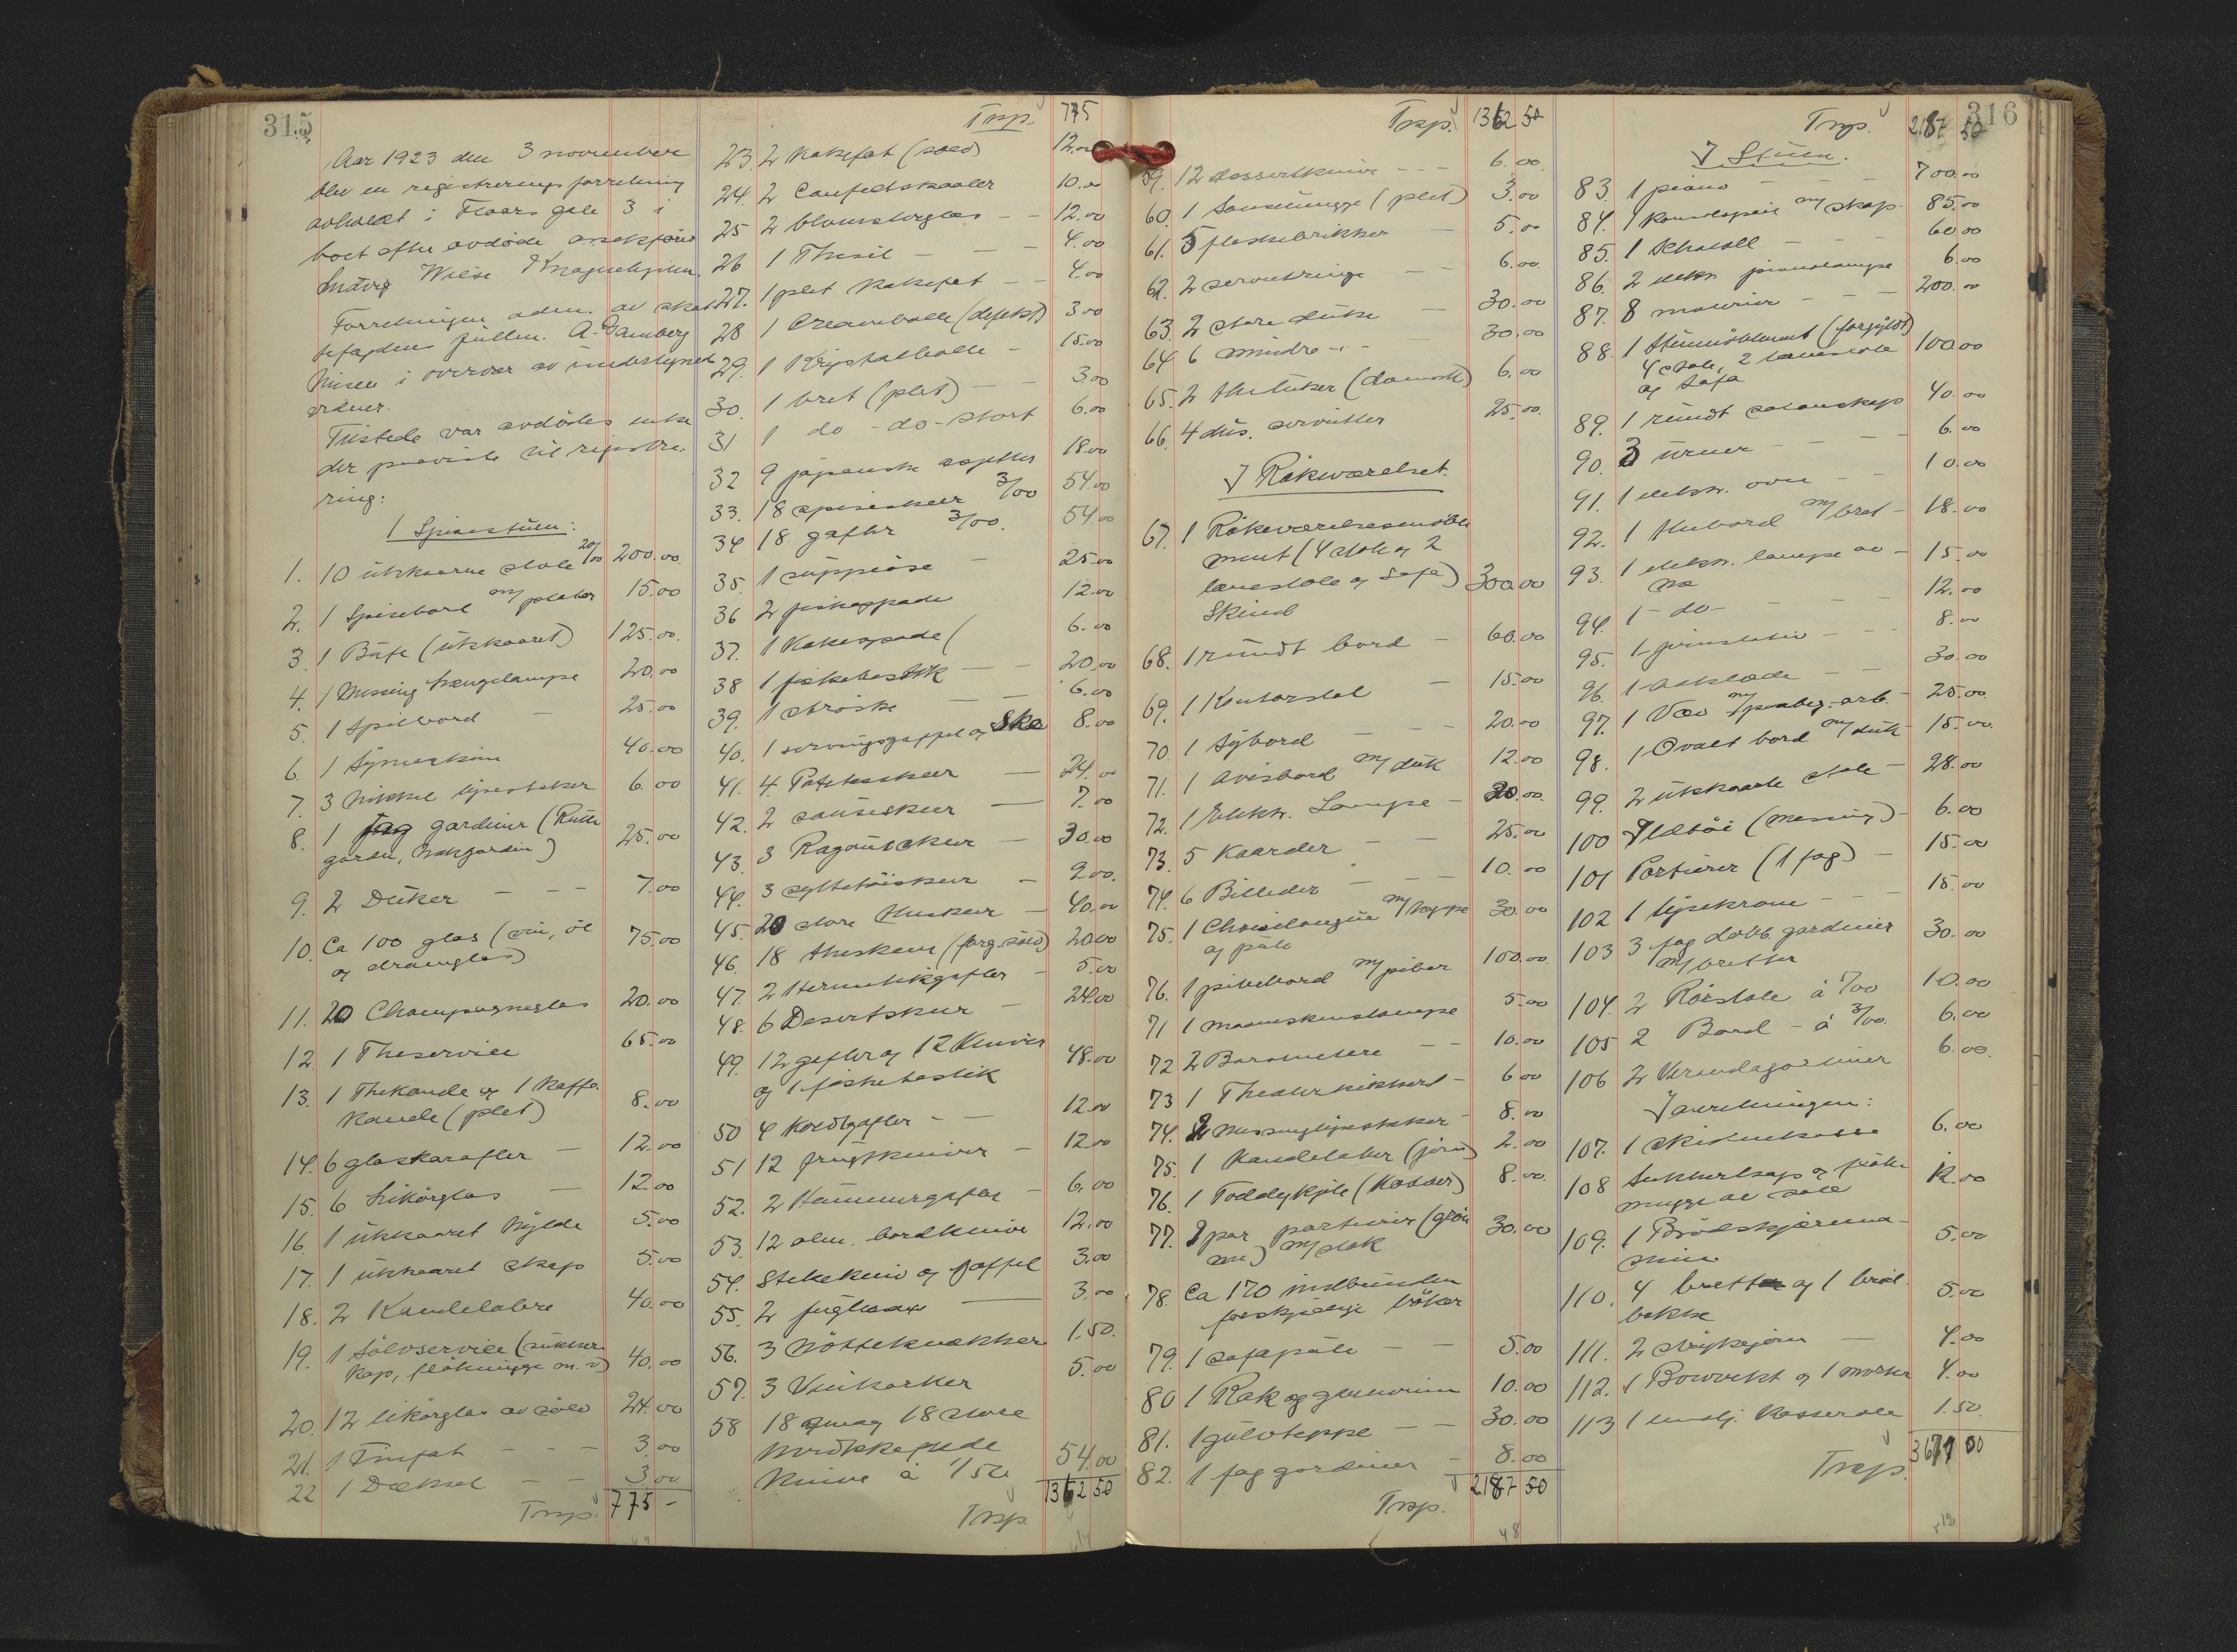 315
Aar 1923 den 3 november
blev en registreringsforretning
avholdt i gate 3 i
boet efter avdøde
Ludvig Wiese
Forretningen adm. av skat
tefogdens fuldm. A. Ramberg
Nissen i overvær av undertegnede
vidner.
Tilstede var avdødes enke
der paaviste til registre-
ring:
I Spisestuen:
1. 10 utskaarne stole 20/00 200.00
2. 1 Spisebord m/ plater 15.00
3. 1 Bufe (utskaaret) 125.00
4. 1 Messing hængelampe 20.00
5. 1 Spilbord — 25.00
6. 1 Symaskin 40.00
7. 3 Nikkel lysestaker 6.00
8. 1 fag gardiner (Rulle
gardin, Trækgardin) 25.00
9. 2 Duker - - - 7.00
10. Ca 100 glas (vin, øl
og dramglas) 75.00
11. 20 Champagneglas 20.00
12. 1 Theservice 65.00
13. 1 Thekande og 1 Kaffe
kande (plet) 8.00
14. 6 glaskarafler — 12.00
15. 6 Likørglas — 12.00
16. 1 utskaaret hylde 5.00
17. 1 utskaaret skap 5.00
18. 2 Kandelabre 40.00
19. 1 Sølvservice (sukker
kop, fløtemugge m.v.) 40.00
20. 12 likørglas av sølv 24.00
21. 1 Tinfat - - - 3.00
22 1 Dæksel - - 3.00
Trsp. 775 -
Trsp. 775
23. 2 Kakefat (sølv) 12.00
24. 2 Confectskaaler 10.00
25 2 blomsterglas - - 12.00
26 1 Thesil - - 4.00
27. 1 plet Kakefat - - 4.00
28 1 Creambolle (defekt) 3.00
29. 1 Krystalbolle - 15.00
30. 1 bret (plet) - - 3.00
31 1 do - do - stort 6.00
32 9 japanske asjetter 18.00
33. 18 spiseskeer 3/00 54.00
34 18 gafler 3/00. 54.00
35. 1 suppeøse - 25.00
36 2 fiskespade 12.00
37. 1 Kakespade ( 6.00
38 1 fiskebestik - - 20.00
39. 1 strøske - - 6.00
40. 1 serveringsgaffel og Ske 8.00
41. 4 Potetesskeer — 24.00
42. 2 sauseskeer — 7.00
43. 3 Ragoutskeer — 30.00
44. 3 syltetøiskeer — 9.00.
45. 20 store theskeer — 40.00
46. 18 theskeer (forg. sølv) 20.00
47. 2 Hermetikgafler - 5.00
48. 6 Desertskeer - 24.00
49. 12 gafler og 12 Kniver
og 1 fiskebestik 48.00
50 4 koldtgafler - - 12.00
51 12 frugtkniver - 12.00
52. 2 Hummergafler - 6.00
53. 12 alm. bordknive 12.00
54. Stekekniv og gaffel 3.00
55. 2 — 3.00
56. 3 Nøtteknækker 1.50.
57. 3 Vinkorker 5.00
58 18 smaa og 18 store
kniver à 1/50 54.00
Trsp. 1362 50
Trsp. 1362 50
59. 12 dessertkniver - - - 6.00
60. 1 Sausemugge (plet) 3.00
61. 5 flaskebrikker — 5.00
62. 2 servietringe - - 6.00.
63. 2 store duke — 30.00
64 6 mindre - " - 30.00
65. 2 theduker (damask) 6.00
66. 4 dus. servietter 25.00.
I Røkeværelset.
67. 1 Røkeværelsesmøble
ment (4 stole og 2
lænestole og Sofa) 300.00
Skind
68. 1 rundt bord — 60.00
69. 1 Kontorstol — 15.00
70. 1 Sybord - - 20.00
71. 1 Avisbord m/ duk 12.00
72. 1 Elektr. Lampe - 20.00.
73. 5 Kaarder - - 25.00
74. 6 Billeder - - - 10.00
75. 1 Chaiselongue m/ teppe
og pute 30.00
76. 1 pibebord m/ piber 100.00.
71 1 maaneskinslampe 5.00
72 2 Barometere - - 10.00
73 1 Theaterkikkert - 6.00
74. 2 messinglysestaker - 8.00
75. 1 Kandelaber (jern) 2.00
76. 1 Toddykjele (kobber) 8.00.
77. 2 par portierer (grøn
ne) m/ stok 30.00
78. Ca 170 indbundne
forskjellige bøker
79. 1 sofapute - - 5.00
80 1 Rak og 10.00
81. 1 gulvteppe - - 30.00
82. 1 fag gardiner - 8.00
Trsp. 2187 50
316
Trsp. 2187 50
I Stuen.
83. 1 piano - - - 700.00
84. 1 Konsolspeil m/ skap - 85.00
85. 1 Chatoll - - - 60.00
86. 2 elektr. pianolampe 6.00
87. 8 malerier - - - 200.00
88. 1 Stuemøblement (forgyldt)
4 stole, 2 lænestole
og sofa 100.00
89. 1 rundt salonskap 40.00
90. 3 urner - - - 6.00
91. 1 elektr. ovn - - 10.00
92. 1 thebord m/ bret - 18.00
93. 1 elektr. lampe av 15.00
94. 1 - do - - - - 12.00
95. 1 - - 8.00
96. 1 - 30.00
97. 1 m/ arb. - 25.00.
98. 1 Ovalt bord m/ duk - 15.00.
99. 2 utskaarte stole - 28.00
100 Ildtøi (messing) - 6.00
101 Portierer (1 fag) - 15.00
102 1 lysekrone - - 15.00
103 3 fag dobb. gardiner
m/ bretter 30.00
104. 2 Rørstole à 5/00 10.00
105 2 Bord - à 3/00. 6.00
106 2 Verandagardiner 6.00.
I anretningen:
107. 1 6.00
108 Sukkerkop og fløte
mugge av sølv 12.00
109. 1 Brødskjærema-
skin 5.00
110. 4 bretter og 1 brød
bakke 5.00
111. 2 strykejern — 4.00
112. 1 Bowekt og 1 morter 4.00
113 1 emalj. Kasserolle 1.50.
Trsp. 3671 00
48